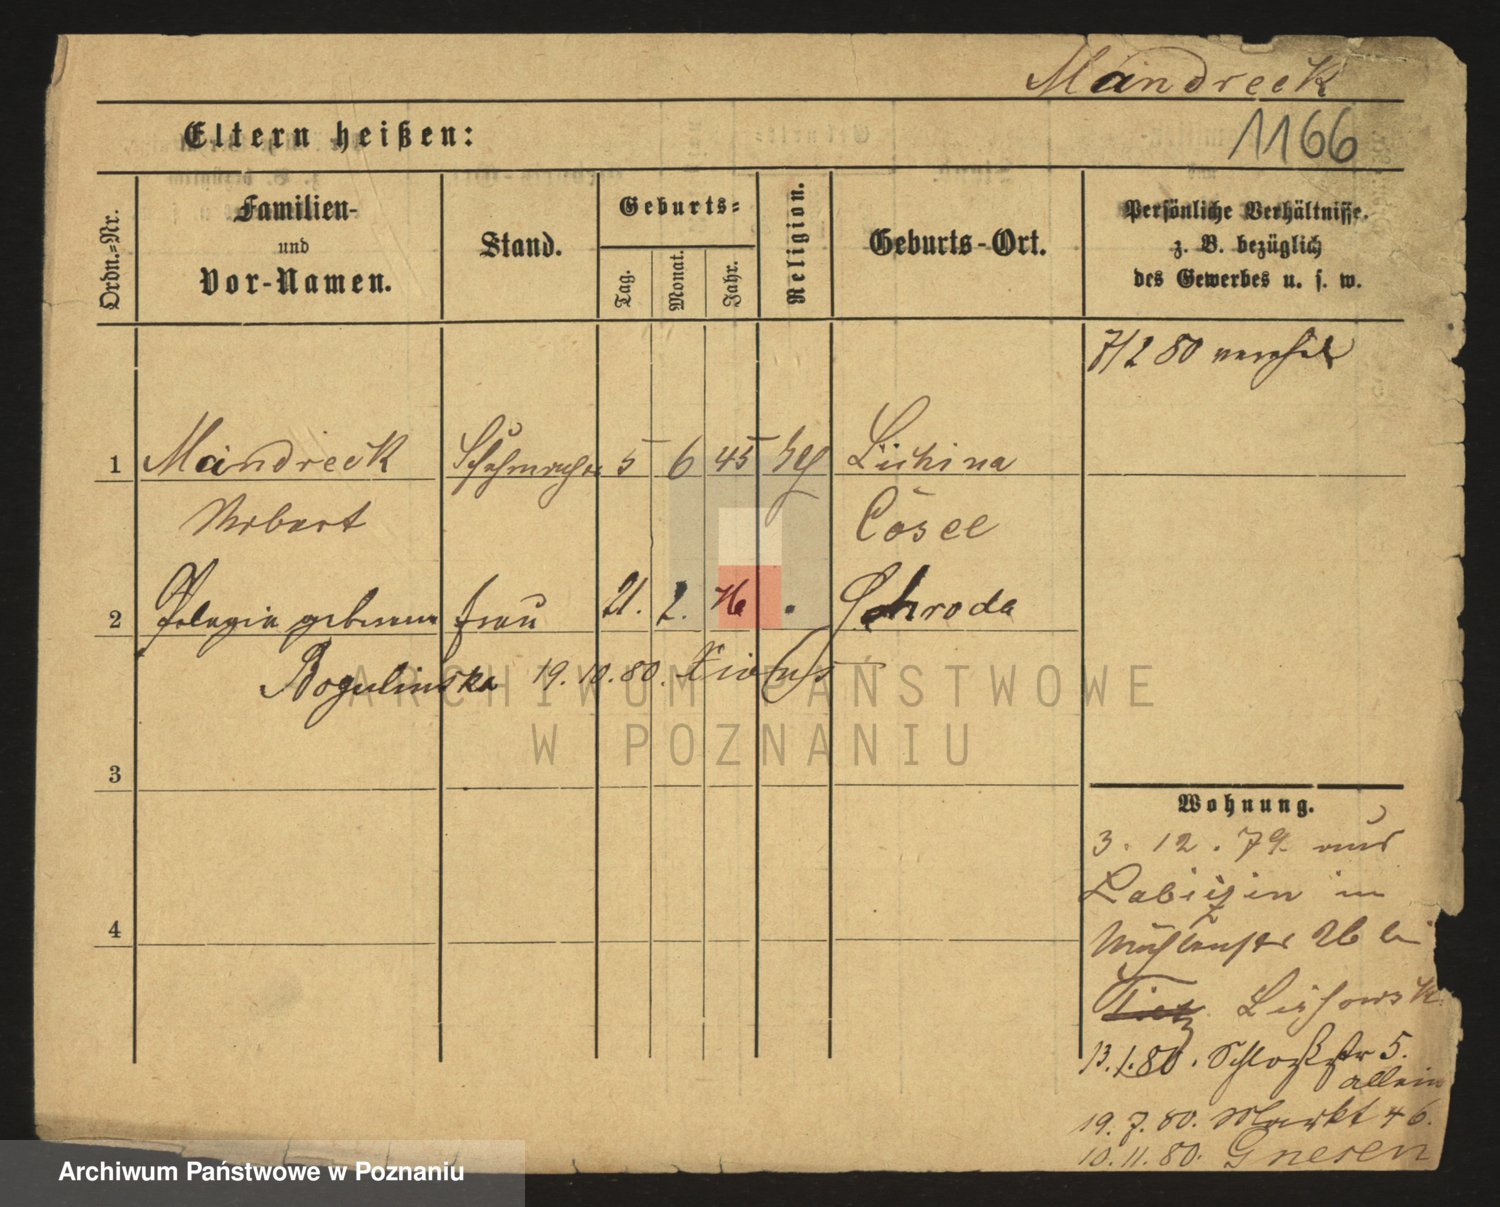 Mandreck
1166
Eltern heißen:
Ordn.=Nr.
Familien-
und
Vor-Namen.
Stand.
Geburts=
Tag.
Monat.
Jahr.
Religion.
Geburts-Ort.
Persönliche Verhältnisse.
z. B. bezüglich
des Gewerbes u. s. w.
7/2 80
1 Mandreck 5 6 45
Cosel
2 Pelagia geborene Frau 21. 2. Schroda
Bogulinska 19. 10. 80. Xions
3
Wohnung.
3. 12. 79. aus
Labischin in
4
Mühlenstr 26 bei
13. 1. 80. Schloßstr 5.
allein
19. 7. 80. Markt 46.
10. 11. 80. Gnesen
ARCHIWUM PAŃSTWOWE
W POZNANIU
Archiwum Państwowe w Poznaniu